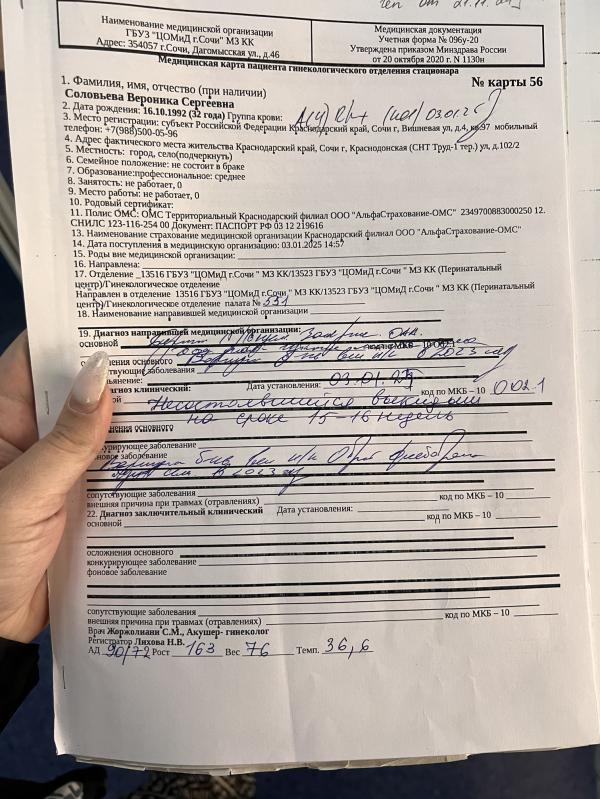 от 21.11.
Наименование медицинской организации
ГБУЗ "ЦОМиД г.Сочи" МЗ КК
Адрес: 354057 г.Сочи, Дагомысская ул., д.46
Медицинская документация
Учетная форма № 096у-20
Утверждена приказом Минздрава России
от 20 октября 2020 г. N 1130н
Медицинская карта пациента гинекологического отделения стационара
№ карты 56
1. Фамилия, имя, отчество (при наличии)
Соловьева Вероника Сергеевна
2. Дата рождения: 16.10.1992 (32 года) Группа крови: Rh+ 03.01.25
3. Место регистрации: субъект Российской Федерации Краснодарский край, Сочи г, Вишневая ул, д.4, кв.97 мобильный
телефон: +7(988)500-05-96
4. Адрес фактического места жительства Краснодарский край, Сочи г, Краснодонская (СНТ Труд-1 тер.) ул, д.102/2
5. Местность: город, село(подчеркнуть)
6. Семейное положение: не состоит в браке
7. Образование:профессиональное: среднее
8. Занятость: не работает, 0
9. Место работы: не работает, 0
10. Родовый сертификат:
11. Полис ОМС: ОМС Территориальный Краснодарский филиал ООО "АльфаСтрахование-ОМС" 2349700883000250 12.
СНИЛС 123-116-254 00 Документ: ПАСПОРТ РФ 03 12 219616
13. Наименование страхование медицинской организации Краснодарский филиал ООО "АльфаСтрахование-ОМС"
14. Дата поступления в медицинскую организацию: 03.01.2025 14:57
15. Роды вне медицинской организации:
16. Направлена:
17. Отделение _13516 ГБУЗ "ЦОМиД г.Сочи " МЗ КК/13523 ГБУЗ "ЦОМиД г.Сочи " МЗ КК (Перинатальный
центр)/Гинекологическое отделение
Направлен в отделение 13516 ГБУЗ "ЦОМиД г.Сочи " МЗ КК/13523 ГБУЗ "ЦОМиД г.Сочи " МЗ КК (Перинатальный
центр)/Гинекологическое отделение палата № 551
18. Наименование направившей медицинской организации
19. Диагноз направившей медицинской организации:
основной код по МКБ – 10
в 2023 году
Дата установления: 03.01.25
клинический: код по МКБ – 10 О02.1
Несостоявшийся выкидыш
на сроке 15-16 недель
основного
конкурирующее заболевание
фоновое заболевание
в 2023 году
сопутствующие заболевания
внешняя причина при травмах (отравлениях) код по МКБ – 10
22. Диагноз заключительный клинический Дата установления:
основной код по МКБ – 10
осложнения основного
конкурирующее заболевание
фоновое заболевание
сопутствующие заболевания
внешняя причина при травмах (отравлениях) код по МКБ – 10
Врач Жоржолиани С.М., Акушер- гинеколог
Регистратор Лихова Н.В.
АД 90/72 Рост 163 Вес 76 Темп. 36,6